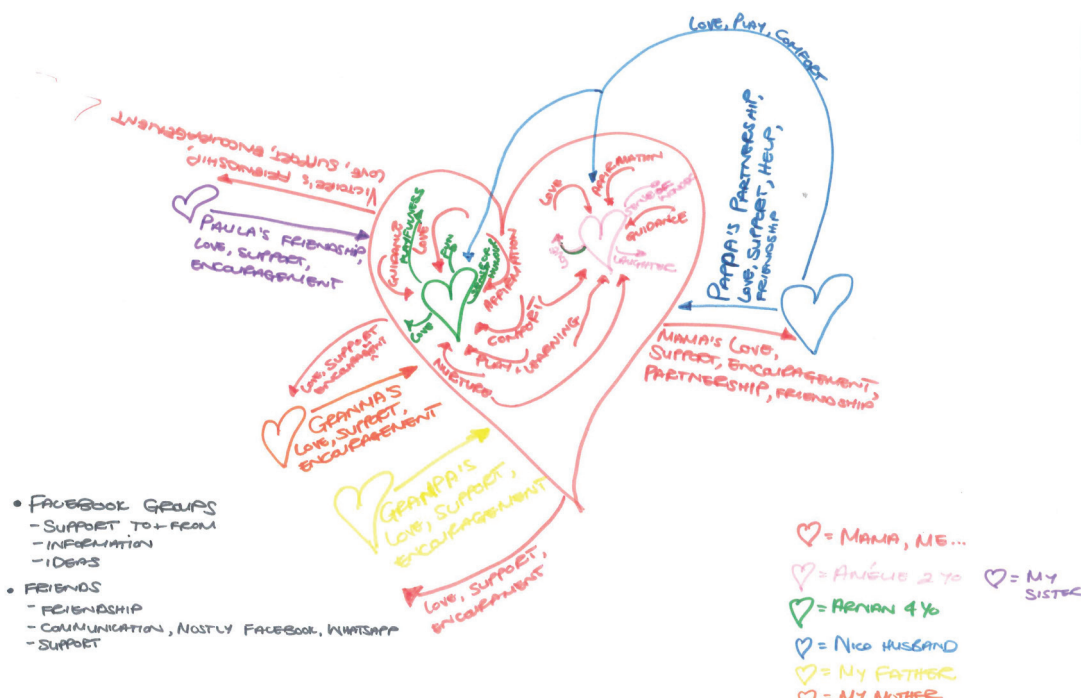 LOVE, PLAY, COMFORT
VICTOIRE'S FRIENDSHIP,
LOVE, SUPPORT, ENCOURAGEMENT
PAULA'S FRIENDSHIP,
LOVE, SUPPORT,
ENCOURAGEMENT
PAPPA'S PARTNERSHIP,
LOVE, SUPPORT, HELP,
FRIENDSHIP
GUIDANCE
PLAYFULNESS
LOVE
FUN
SENSE OF
HUMOUR
AFFIRMATION
LOVE
COMFORT
PLAY + LEARNING
NURTURE
LOVE
AFFIRMATION
SENSE OF
HUMOUR
GUIDANCE
LOVE
LAUGHTER
MAMA'S LOVE,
SUPPORT, ENCOURAGEMENT,
PARTNERSHIP, FRIENDSHIP
LOVE, SUPPORT
ENCOURAGEMENT
GRANMA'S
LOVE, SUPPORT,
ENCOURAGEMENT
GRAMPA'S
LOVE, SUPPORT,
ENCOURAGEMENT
LOVE, SUPPORT,
ENCOURAMENT
• FACEBOOK GROUPS
- SUPPORT TO + FROM
- INFORMATION
- IDEAS
• FRIENDS
- FRIENDSHIP
- COMMUNICATION, MOSTLY FACEBOOK, WHATSAPP
- SUPPORT
= MAMA, ME...
= AMÉLIE 2 YO = MY
SISTER
= ARNAN 4 YO
= NICO HUSBAND
= MY FATHER
= MY MOTHER